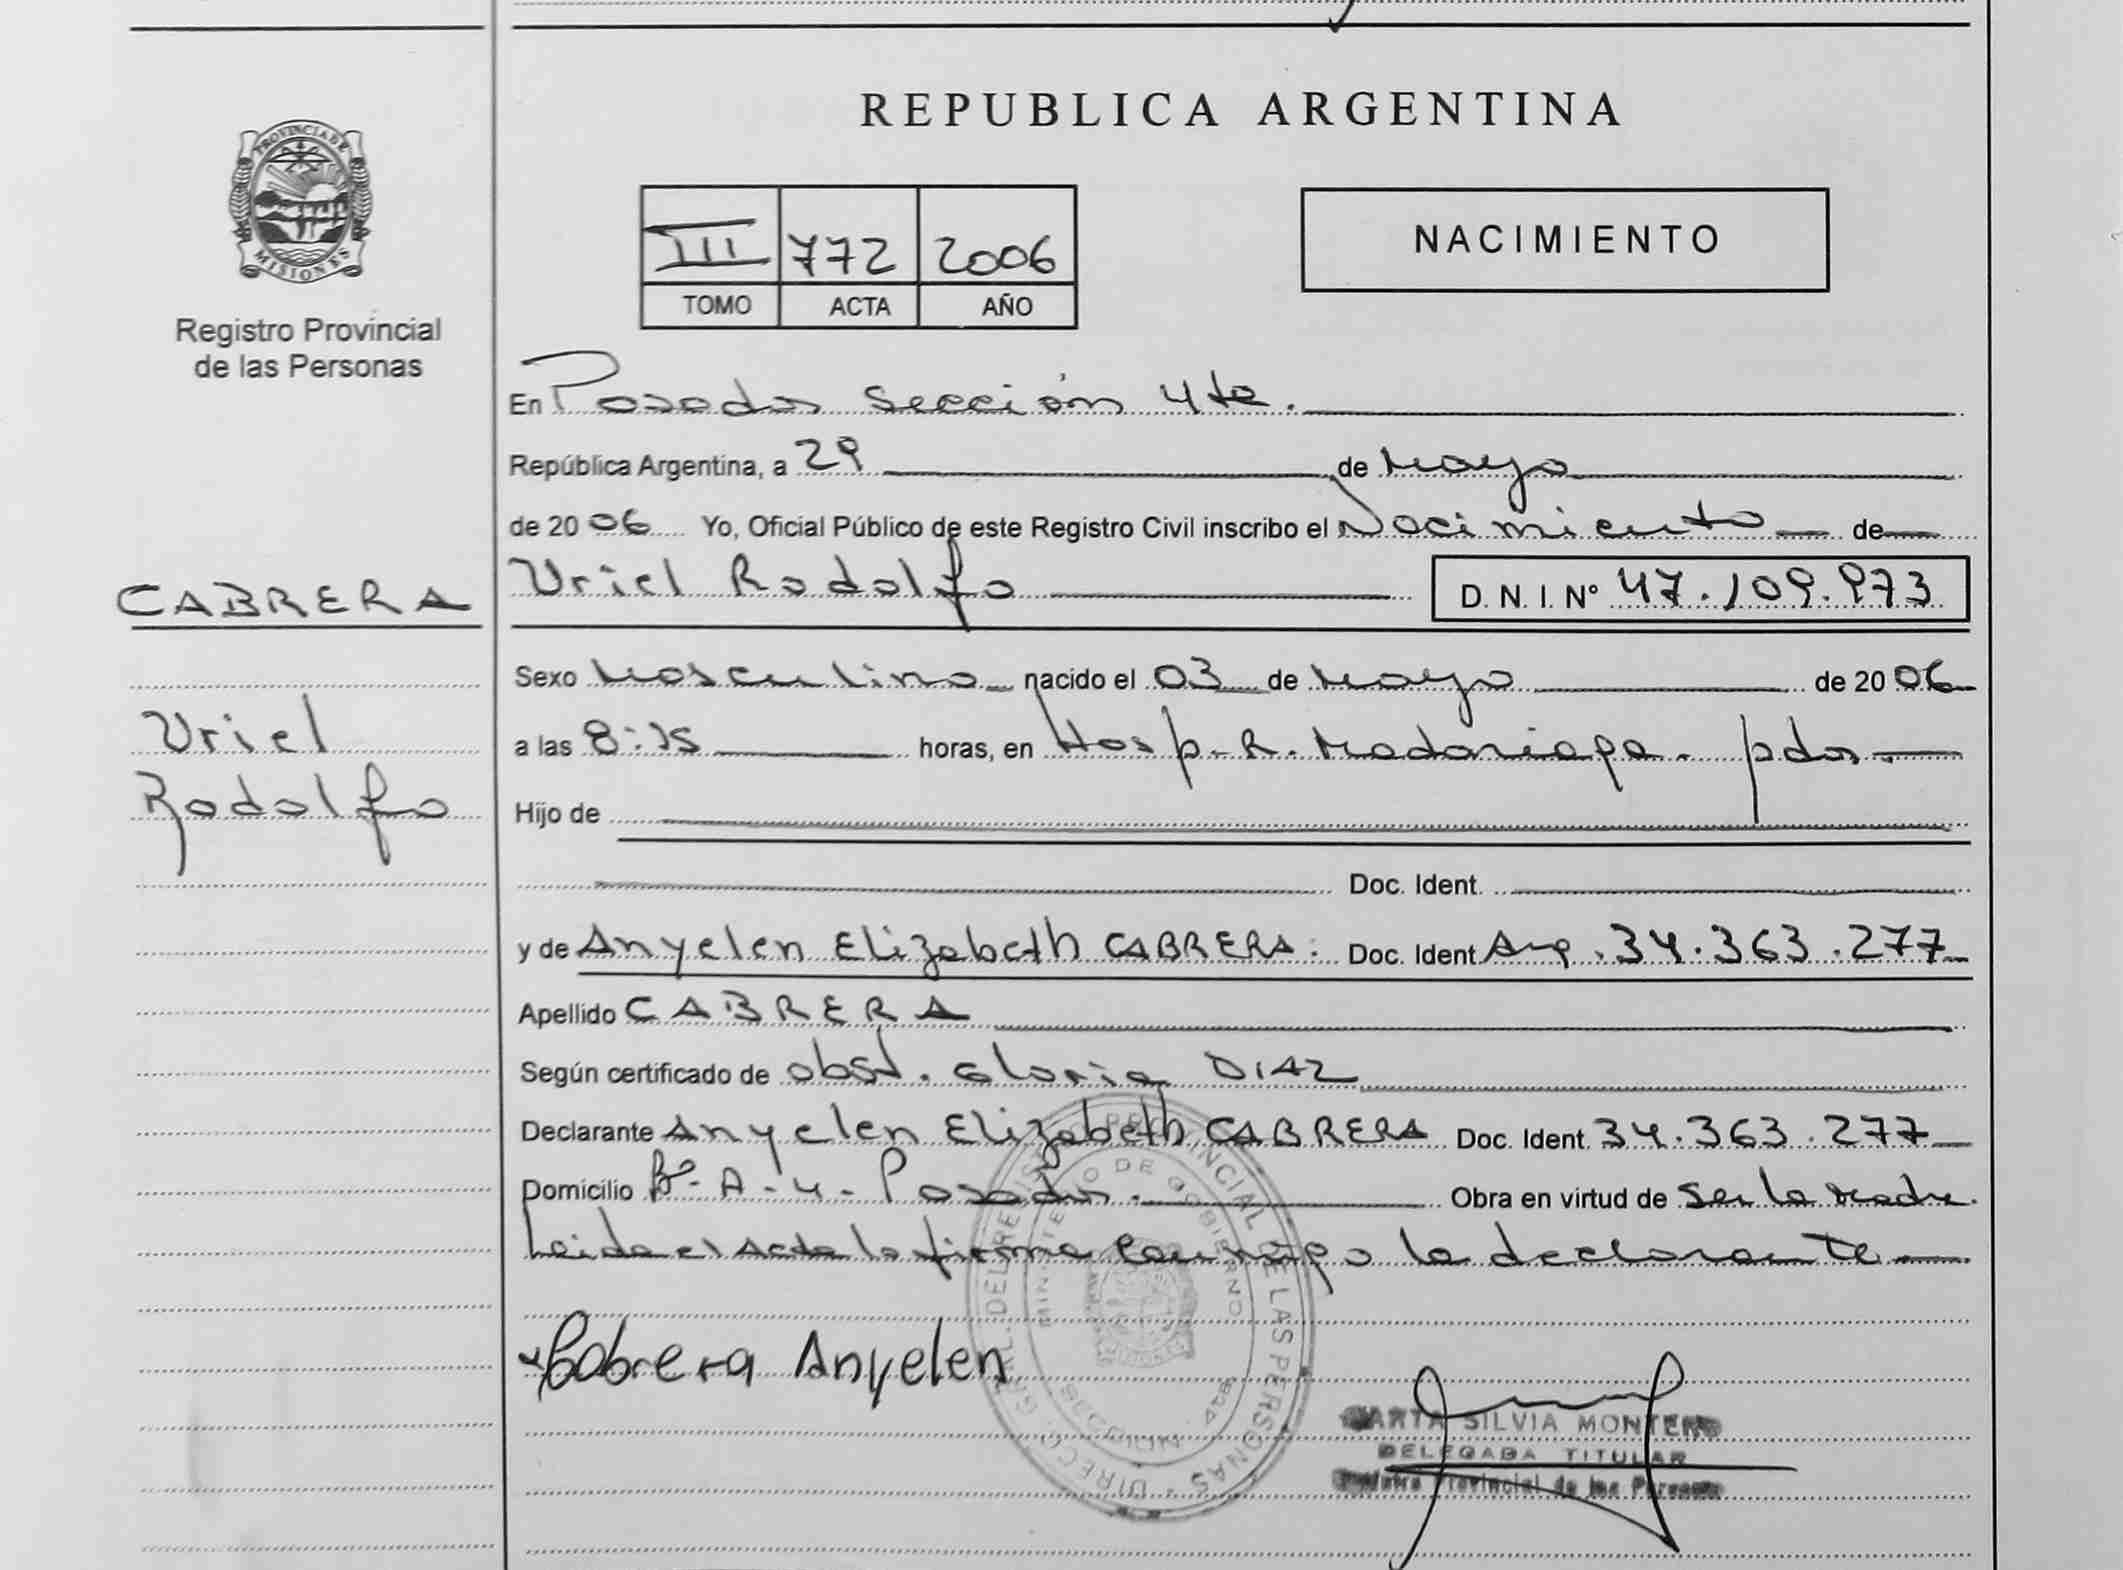 PROVINCIA DE
MISIONES
Registro Provincial
de las Personas
REPUBLICA ARGENTINA
III 772 2006
TOMO ACTA AÑO
NACIMIENTO
En Posadas Sección 4ta.
República Argentina, a 29 de Mayo
de 2006 Yo, Oficial Público de este Registro Civil inscribo el Nacimiento de
CABRERA
Uriel Rodolfo D. N. I. Nº 47.109.973
Sexo Masculino nacido el 03 de Mayo de 2006
Uriel
a las 8:15 horas, en Hosp. R. Madariaga - pdas.
Rodolfo
Hijo de
Doc. Ident.
y de Anyelen Elizabeth CABRERA: Doc. Ident Arg. 34.363.277
Apellido CABRERA
Según certificado de obst. Gloria DIAZ
Declarante Anyelen Elizabeth CABRERA Doc. Ident. 34.363.277
Domicilio Bº A-4- Posadas. Obra en virtud de ser la Madre.
Leida el Acta la firma conmigo la declarante
Cabrera Anyelen
DIREC. GRAL. DEL REGISTRO PROVINCIAL DE LAS PERSONAS
MINISTERIO DE GOBIERNO
MARTA SILVIA MONTERO
DELEGADA TITULAR
Registro Provincial de las Personas